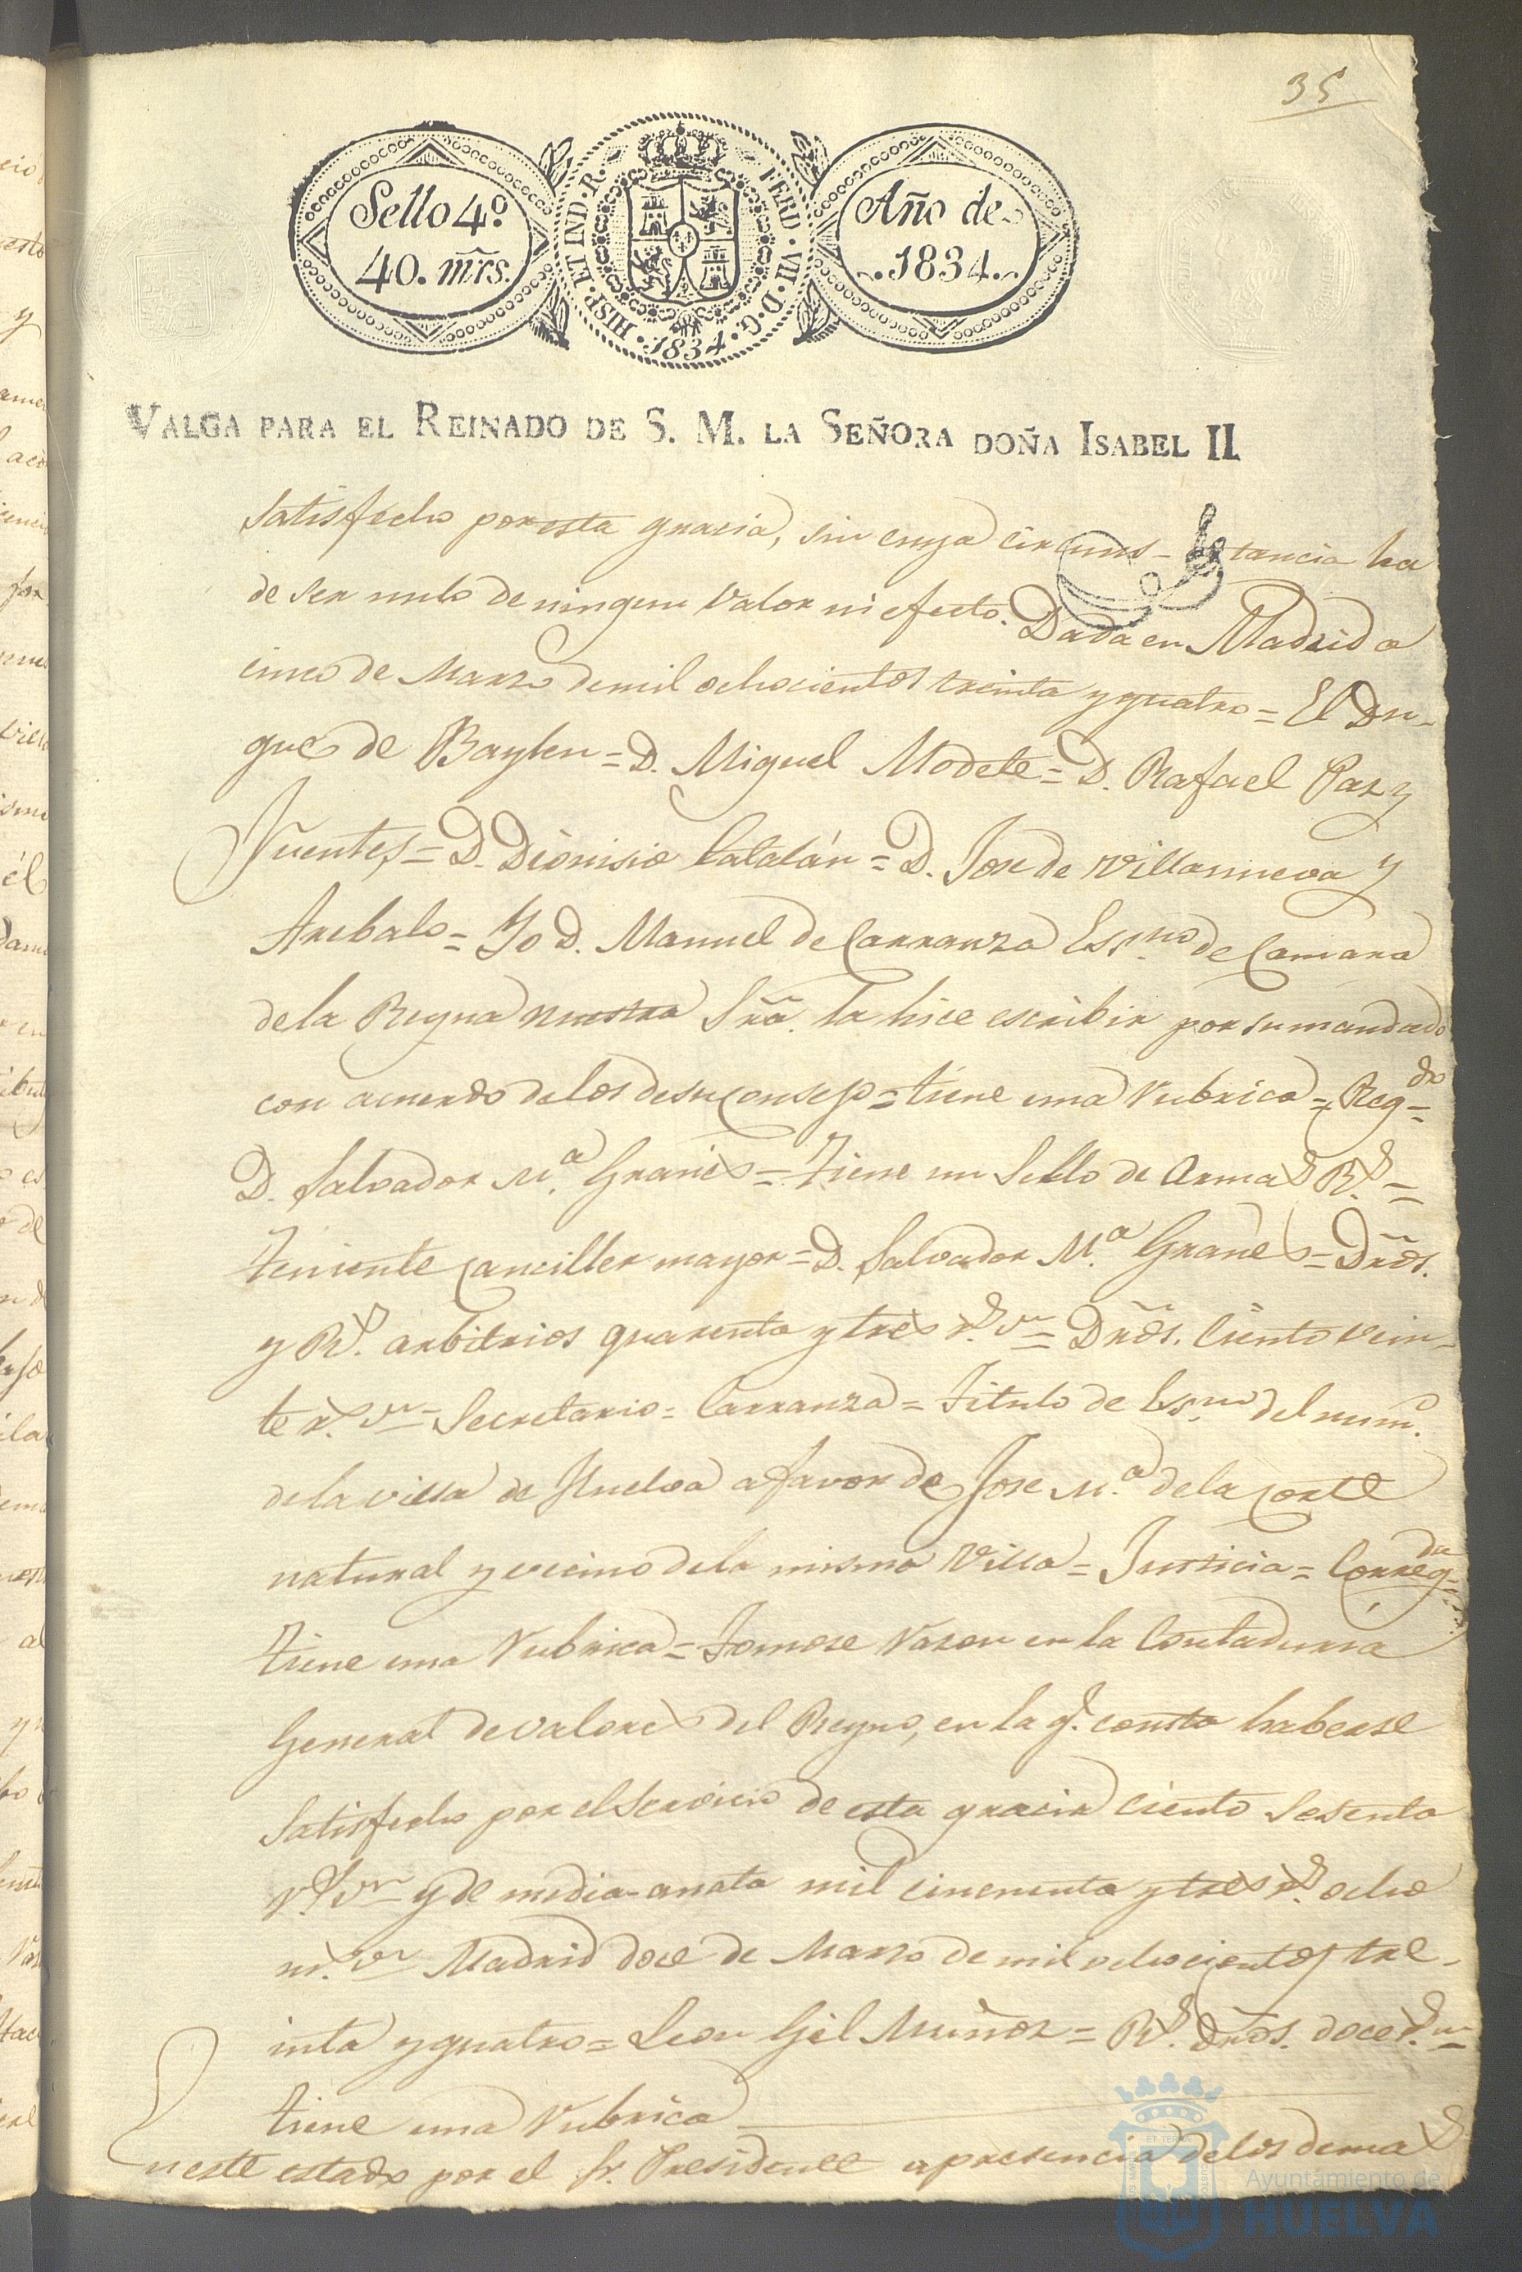 35
Sello 4º
40. mrs.
HISP. ET IND. R. FERD. VII. D. G. 1834.
Año de
1834.
VALGA PARA EL REINADO DE S. M. LA SEÑORA DOÑA ISABEL II.
satisfecho por esta gracia, sin cuya circuns-tancia ha
de ser nulo de ningun valor ni efecto. Dada en Madrid a
cinco de Marzo de mil ochocientos treinta y quatro = El Du-
que de Baylen = D. Miguel Modete = D. Rafael Paz y
Fuentes = D. Dionisio Catalán = D. Jose de Villanueva y
Arebalo = Yo D. Manuel de Carranza Esno. de Camara
de la Reyna nuestra Sra. la hice escribir por su mandado
con acuerdo de los de su Consejo = tiene una rubrica = Regdo =
D. Salvador Ma. Granés = Tiene un Sello de Armas Rs. =
Teniente canciller mayor = D. Salvador Ma. Granés = Dros.
y Rs. arbitrios quarenta y tres rs. vn = Dros. Ciento vein-
te rs. vn = Secretario = Carranza = Titulo de Esno del numo.
de la villa de Huelva a favor de Jose Ma. de la Corte
natural y vecino de la misma Villa = Justicia = Corregda =
tiene una rubrica = Tomose razon en la Contaduria
General de valores del Reyno, en la q. consta haberse
satisfecho por el servicio de esta gracia ciento sesenta
rs. vn y de media-anata mil cincuenta y tres rs. ocho
m. vn Madrid doce de Marzo de mil ochocientos tre-
inta y quatro = Leon Gil Muñoz = Rs. Dros. doce rs. vn =
tiene una rubrica
n este estado por el Sr. Presidente a presencia de los demas
Ayuntamiento de
HUELVA